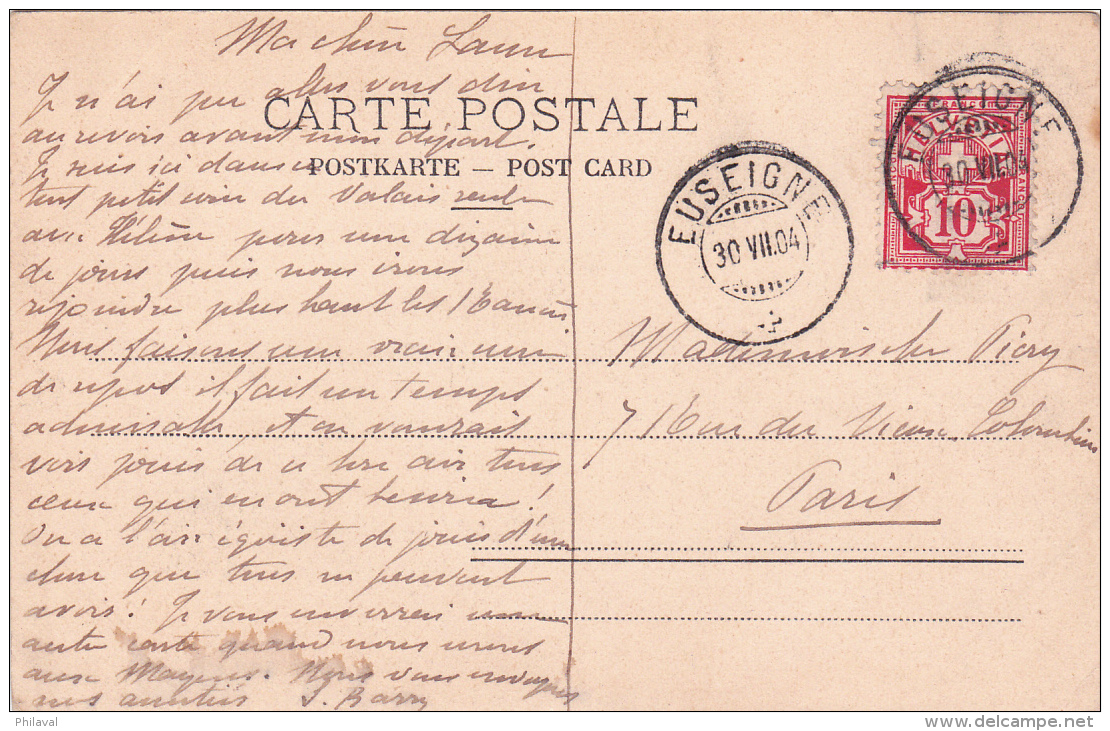 Ma chère Laure
Je n'ai pu aller vous dire
au revoir avant mon départ.
Je suis ici dans un
tout petit coin du Valais seule
avec Hélène pour une dizaine
de jours puis nous irons
rejoindre plus haut les
Nous faisons une vraie cure
de repos il fait un temps
admirable, et on voudrait
voir jouir de ce bon air tous
ceux qui en ont besoin!
On a l'air égoïste de jouir d'une
chose que tous ne peuvent
avoir! Je vous enverrai une
autre carte quand nous serons
aux Mayens. Nous vous envoyons
nos amitiés J. Barry
CARTE POSTALE
POSTKARTE – POST CARD
EUSEIGNE
30 VII.04
EUSEIGNE
30 VII.04
HELVETIA
FRANCO
10
Mademoiselle
7 Rue du Vieux Colombier
Paris
Philaval
delcampe.net